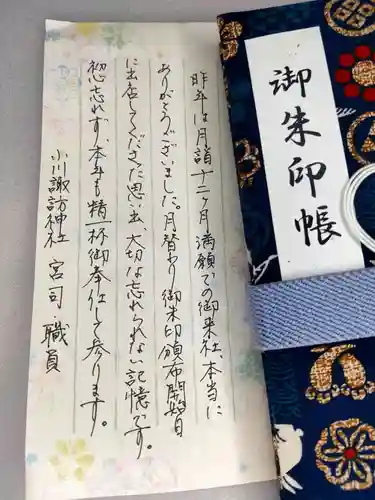 御朱印帳
昨年は月詣十二ヶ月満願での御来社、本当に
ありがとうございました。月替わり御朱印頒布開始日
に出店してくださった思い出、大切な忘れられない記憶です。
初心忘れず、本年も精一杯御奉仕して参ります。
小川諏訪神社 宮司・職員